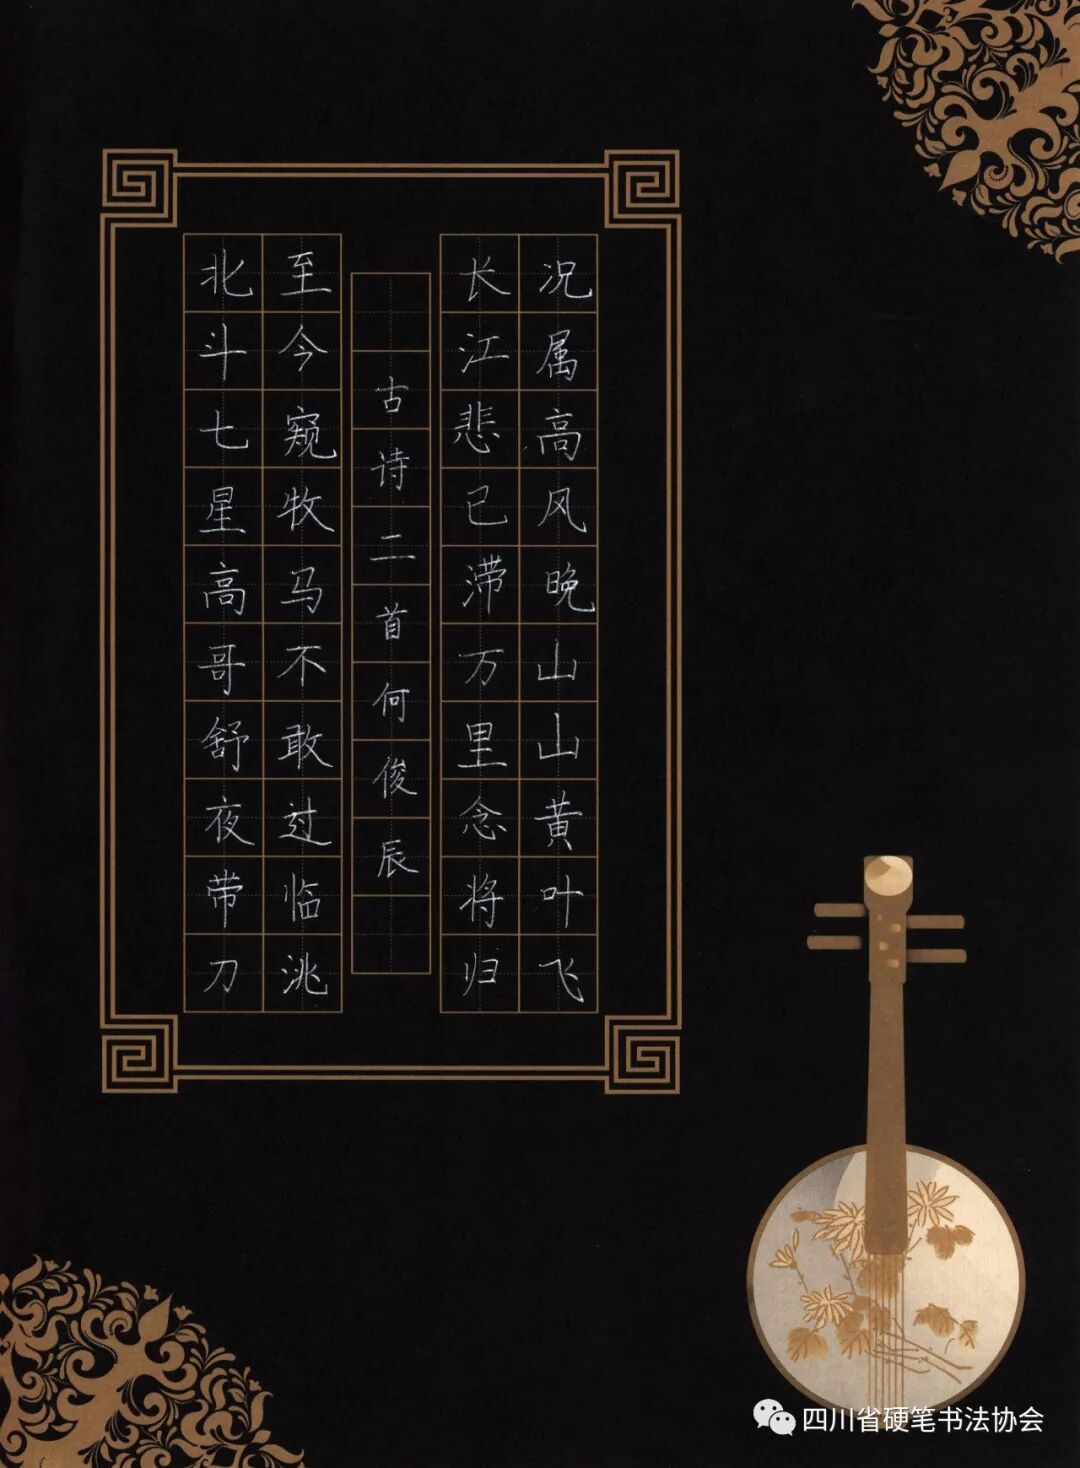 北斗七星高哥舒夜带刀
至今窥牧马不敢过临洮
古诗二首何俊辰
长江悲已滞万里念将归
况属高风晚山山黄叶飞
四川省硬笔书法协会